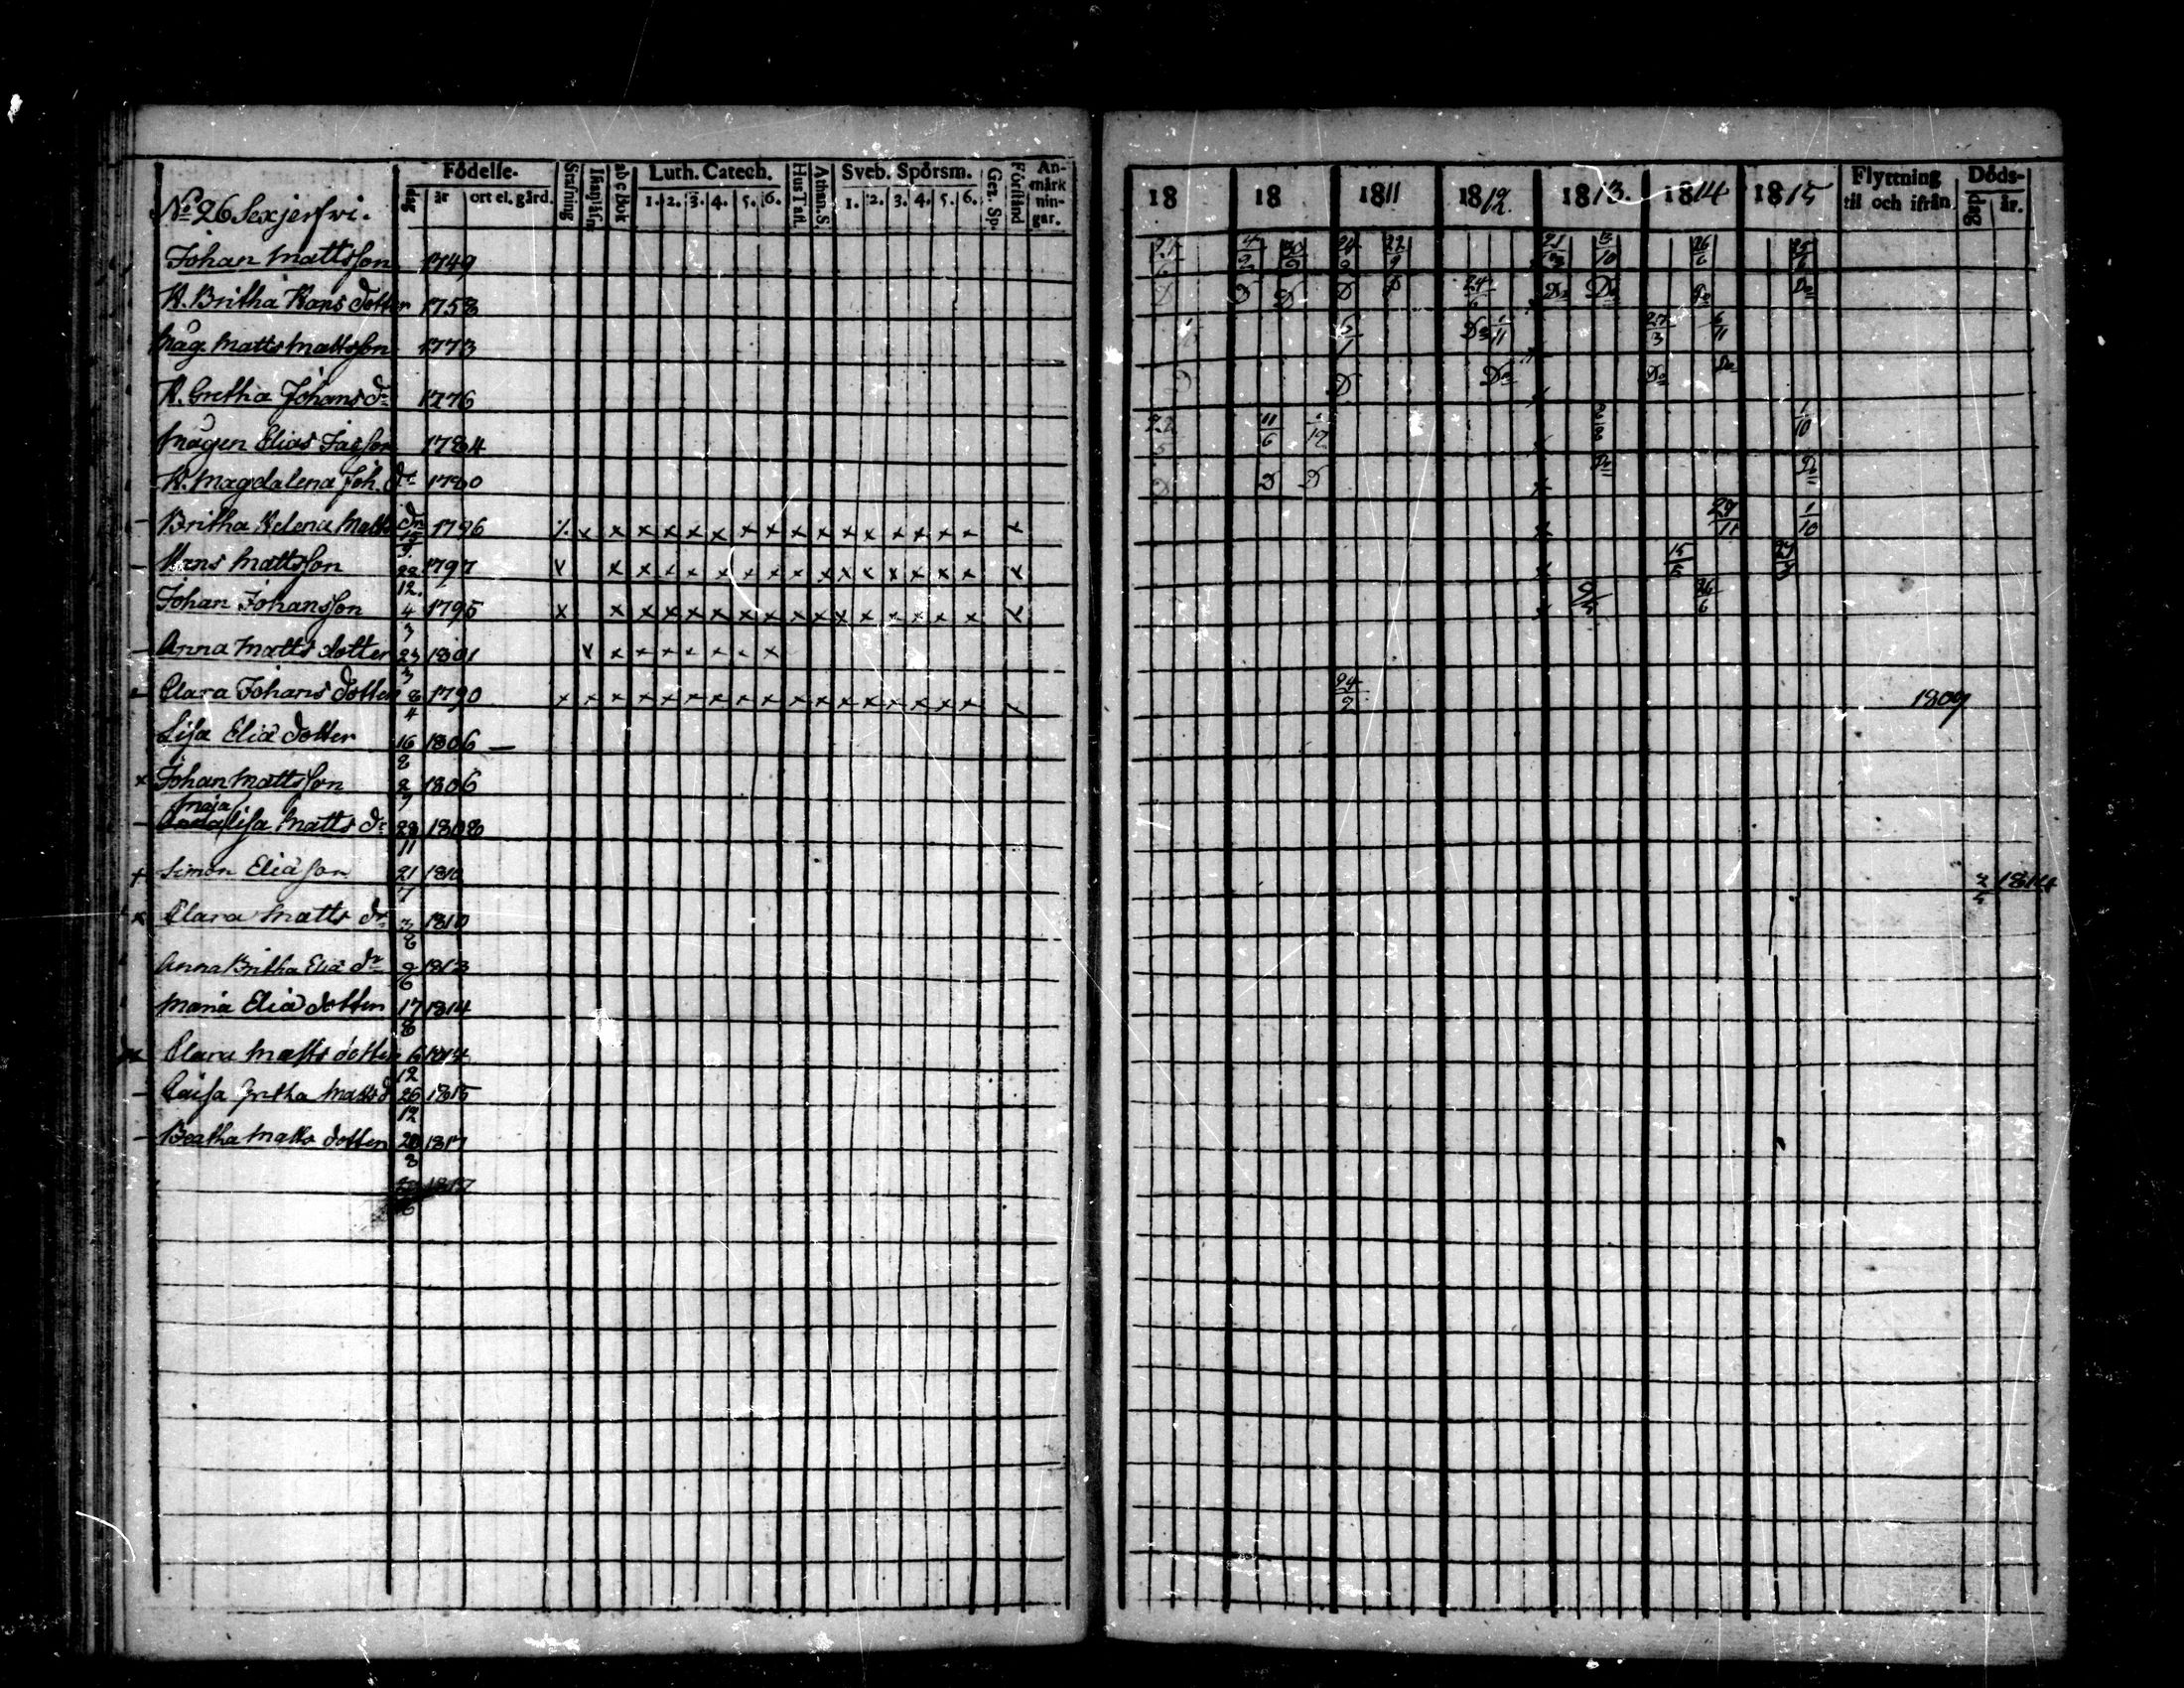 Födelse-
dag
år
ort el. gård.
Stafning
abc Bok
Luth. Catech.
1. 2. 3. 4. 5. 6.
Hus Tafl.
Athan. S.
Sveb. Spörsm.
1. 2. 3. 4. 5. 6.
Gez. Sp.
Förstånd
An-
märk
nin-
gar.
No 26 Sexjerfwi.
Johan Mattsson 1749
H. Britha Hans dotter 1758
Måg. Matts Mattsson 1773
H. Gretha Johans dr 1776
Mågen Elias 1784
H. Magdalena Joh. dr 1780
Britha Helena Matts dr 15/9 1796 x x x x x x x x x x x x x x x x x
Hans Mattsson 22/12 1797 x x x x x x x x x x x x x x x x
Johan Johansson 4/3 1795 x x x x x x x x x x x x x x x x x
Anna Matts dotter 23/3 1801 x x x x x x x x
Clara Johans dotter 8/4 1790 x x x x x x x x x x x x x x x x x x
Lisa Eliæ dotter 16/8 1806 —
x Johan Mattsson 2/7 1806
Maja
Lisa Matts dr 28/11 1808
+ Simon Eliæson 21/7 1810
x Clara Matts dr 3/8 1810
Anna Britha Eliæ dr 9/6 1813
Maria Eliæ dotter 17/8 1814
Clara Matts dotter 6/12 1814
Caisa Britha Matts d 26/12 1815
Beatha Matts dotter 20/8 1817
1817
18 18 1811 1812. 1813. 1814 1815
Flyttning
til och ifrån
Döds-
dag
år.
4/2 30/9 24/9 22/9 21/3 3/10 26/6 25/6
D D D D D 24/6 Do Do Do Do
6/1 Do 1/11 27/3 6/11
D D Do Do Do
22/5 11/6 1/12 1/10
D D D Do Do
29/11 1/10
15/5
26/6
24/9 1809
2/4 1814